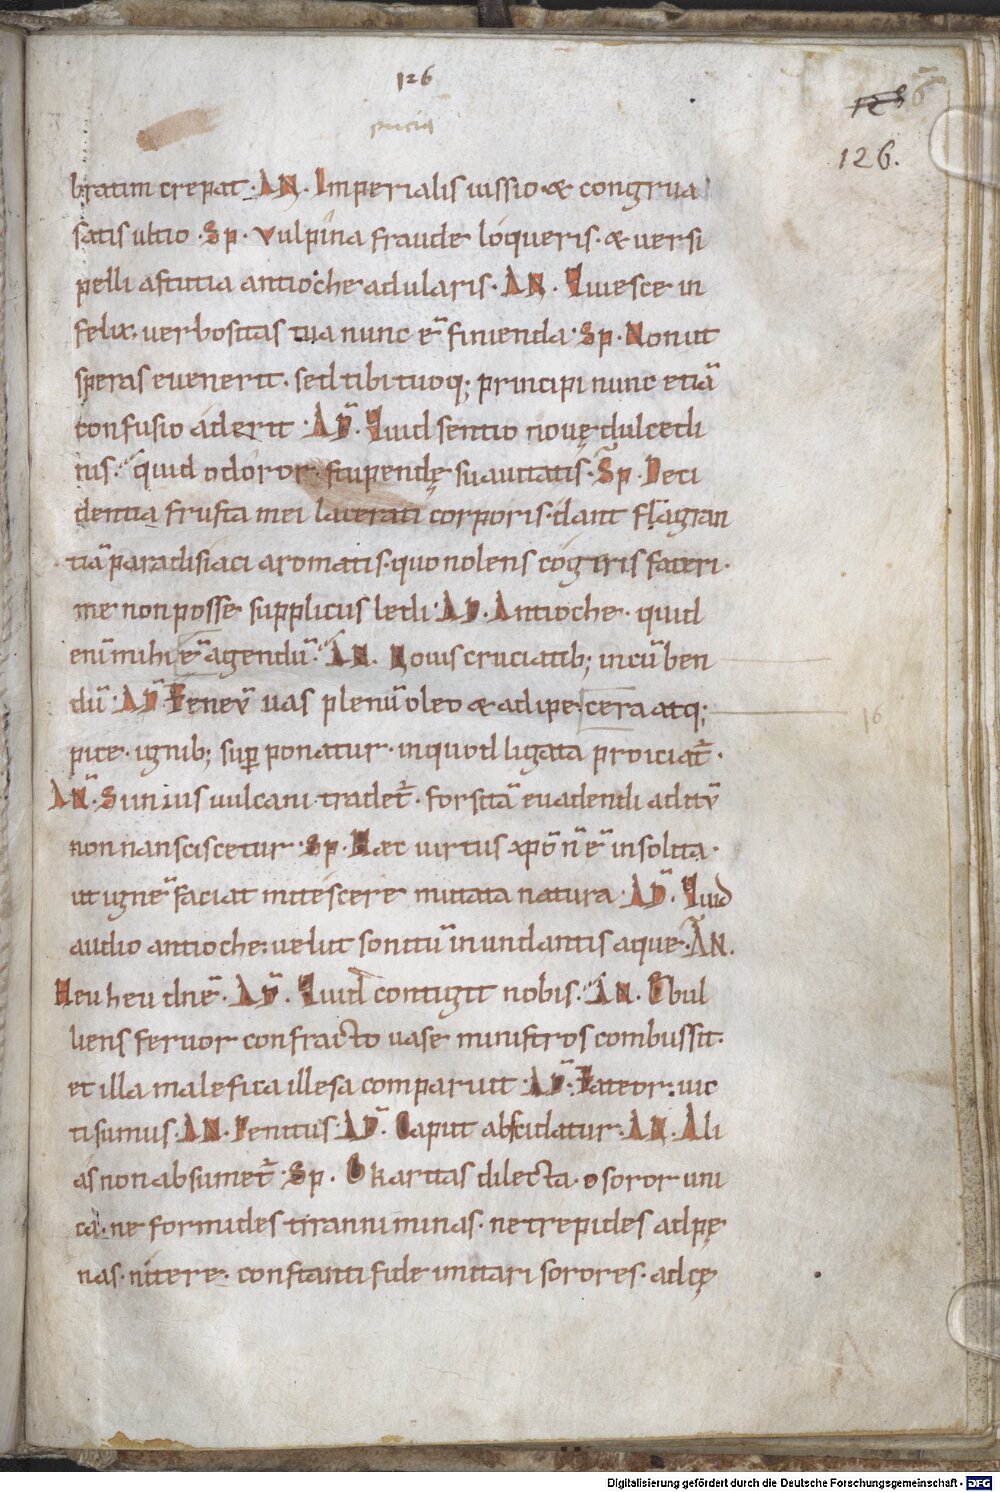 126
126.
bratim crepat · AN · Imperialis iussio · & congrua
satis ultio · Sp · vulpina fraude loqueris · & versi
pelli astutia antioche adularis · AN · Quiesce in
felix · verbositas tua nunc ē finienda · Sp · Non ut
speras evenerit · sed tibi tuoq; principi nunc etiā
confusio aderit · AD̄ · Quid sentio novę dulcedi
nis · quid odoror stupendę suavitatis · Sp · Deci
dentia frusta mei lacerati corporis · dant flagran
tiā paradisiaci aromatis · quo nolens cogeris fateri ·
me non posse suppliciis ledi · AD · Antioche · quid
enī mihi ē agendū · AN · Novis cruciatib; incūben
dū · AD̄ · Eneū vas plenū oleo & adipe · cera atq;
pice · ignib; sup̄ponatur · in quod ligata proiciat̄ ·
AN̄ · Si in ius vulcani tradet̄ · forsitā evadendi aditū
non nanciscetur · Sp · Hæc virtus xp̄o n̄ ē insolita ·
ut ignē faciat mitescere mutata natura · AD̄ · Quid
audio antioche · velut sonitū inundantis aque · AN ·
Heu heu dn̄e · AD̄ · Quid contigit nobis · AN · Ebul
liens fervor confracto vase ministros combussit ·
et illa malefica illesa comparuit · AD̄ · Fateor · vic
ti sumus · AN · Penitus · AD̄ · Caput abscidatur · AN · Ali
as non absumet̄ · Sp · O karitas dilecta · o soror uni
ca · ne formides tiranni minas · ne trepides ad pę
nas · nitere · constanti fide imitari sorores · ad cę
16
Digitalisierung gefördert durch die Deutsche Forschungsgemeinschaft · DFG